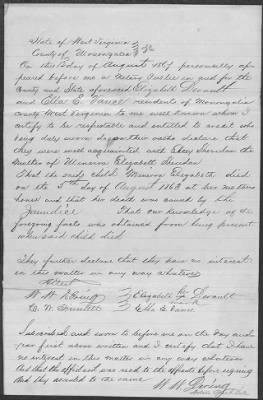 State of West Virginia
County of Monongalia } SS
On this 8 day of August 1867 personally ap-
peared before me a Notary Public in and for the
County and State aforesaid Elizabeth Devault
and Ella E. Vance residents of Monongalia
County West Virginia to me well known whom I
certify to be respectable and entitled to credit who
being duly sworn depose on their oaths declare that
they were well acquainted with Sheridan the
Mother of Minerva Elizabeth Sheridan
That the said child Minerva Elizabeth died
on the 5th day of August 1863 at her mothers
house and that her death was caused by the
Jaundice That our knowledge of the
foregoing facts was obtained from being present
when said child died
They further declare that they have no interest
in this matter in any way whatever
Attest
Elizabeth Devault
mark
Ella E Vance
Subscribed and sworn to before me on the day and
year first above written and I certify that I have
no interest in this matter in any way whatever
And that the affidavit was read to the affiants before signing
And they assented to the same